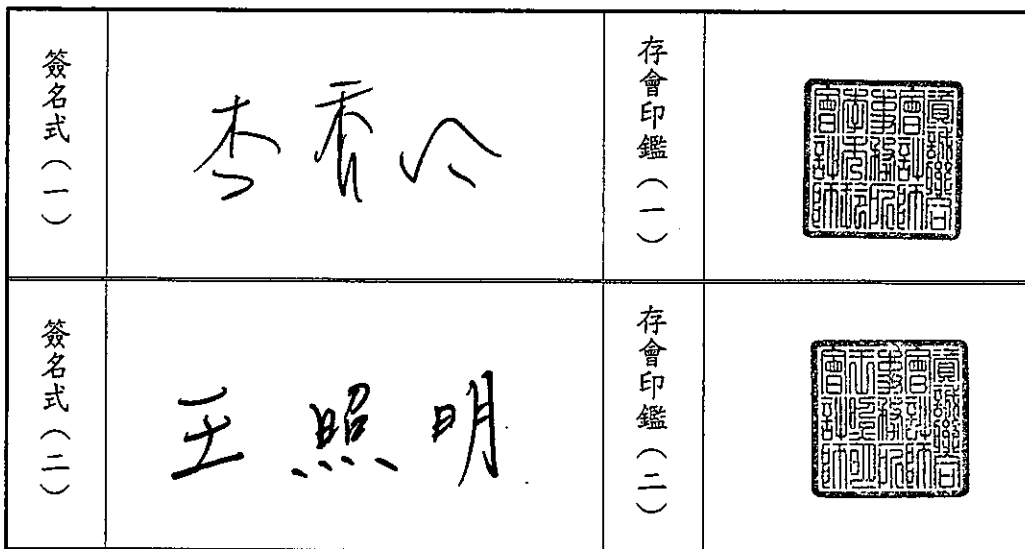 簽名式（一）
李秀玲
存會印鑑（一）
資誠聯合
會計師
事務所
李秀玲
會計師
簽名式（二）
王照明
存會印鑑（二）
資誠聯合
會計師
事務所
王照明
會計師